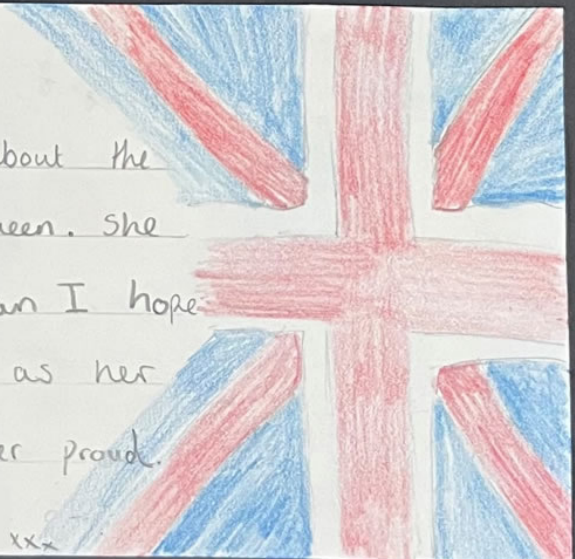 bout the
een. She
an I hope
as her
er proud.
xxx